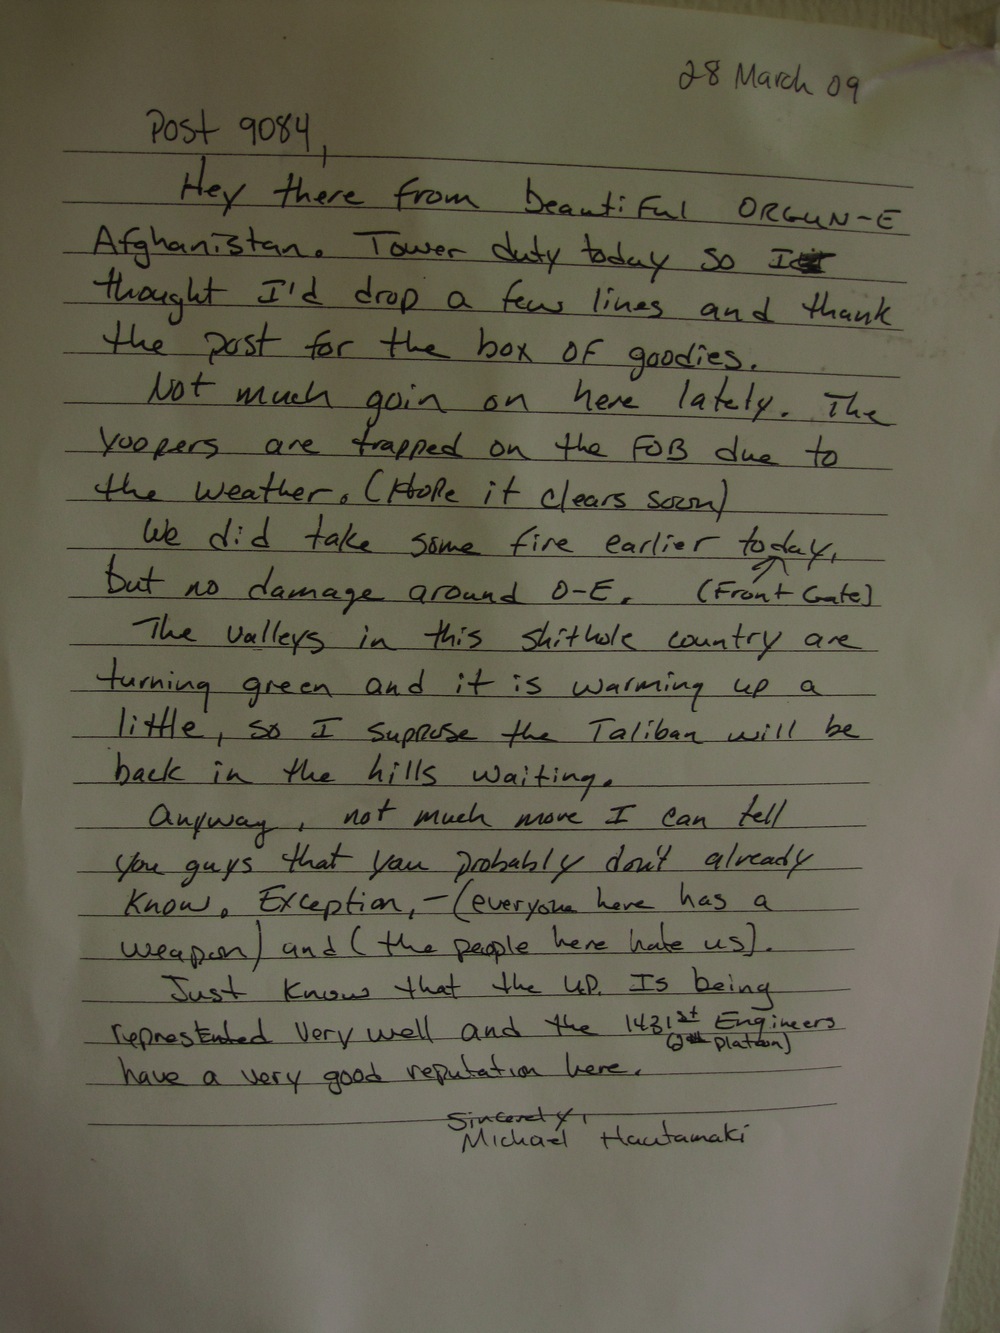 28 March 09
Post 9084,
Hey there from beautiful ORGUN-E
Afghanistan. Tower duty today so I
thought I'd drop a few lines and thank
the post for the box of goodies.
Not much goin on here lately. The
Yoopers are trapped on the FOB due to
the weather. (Hope it clears soon)
We did take some fire earlier today,
but no damage around O-E. (Front Gate)
The valleys in this shithole country are
turning green and it is warming up a
little, so I suppose the Taliban will be
back in the hills waiting.
Anyway, not much more I can tell
you guys that you probably don't already
know. Exception, - (everyone here has a
weapon) and (the people here hate us).
Just know that the U.P. Is being
represented very well and the 1431st Engineers
(2nd Platoon)
have a very good reputation here.
Sincerely,
Michael Hautamaki